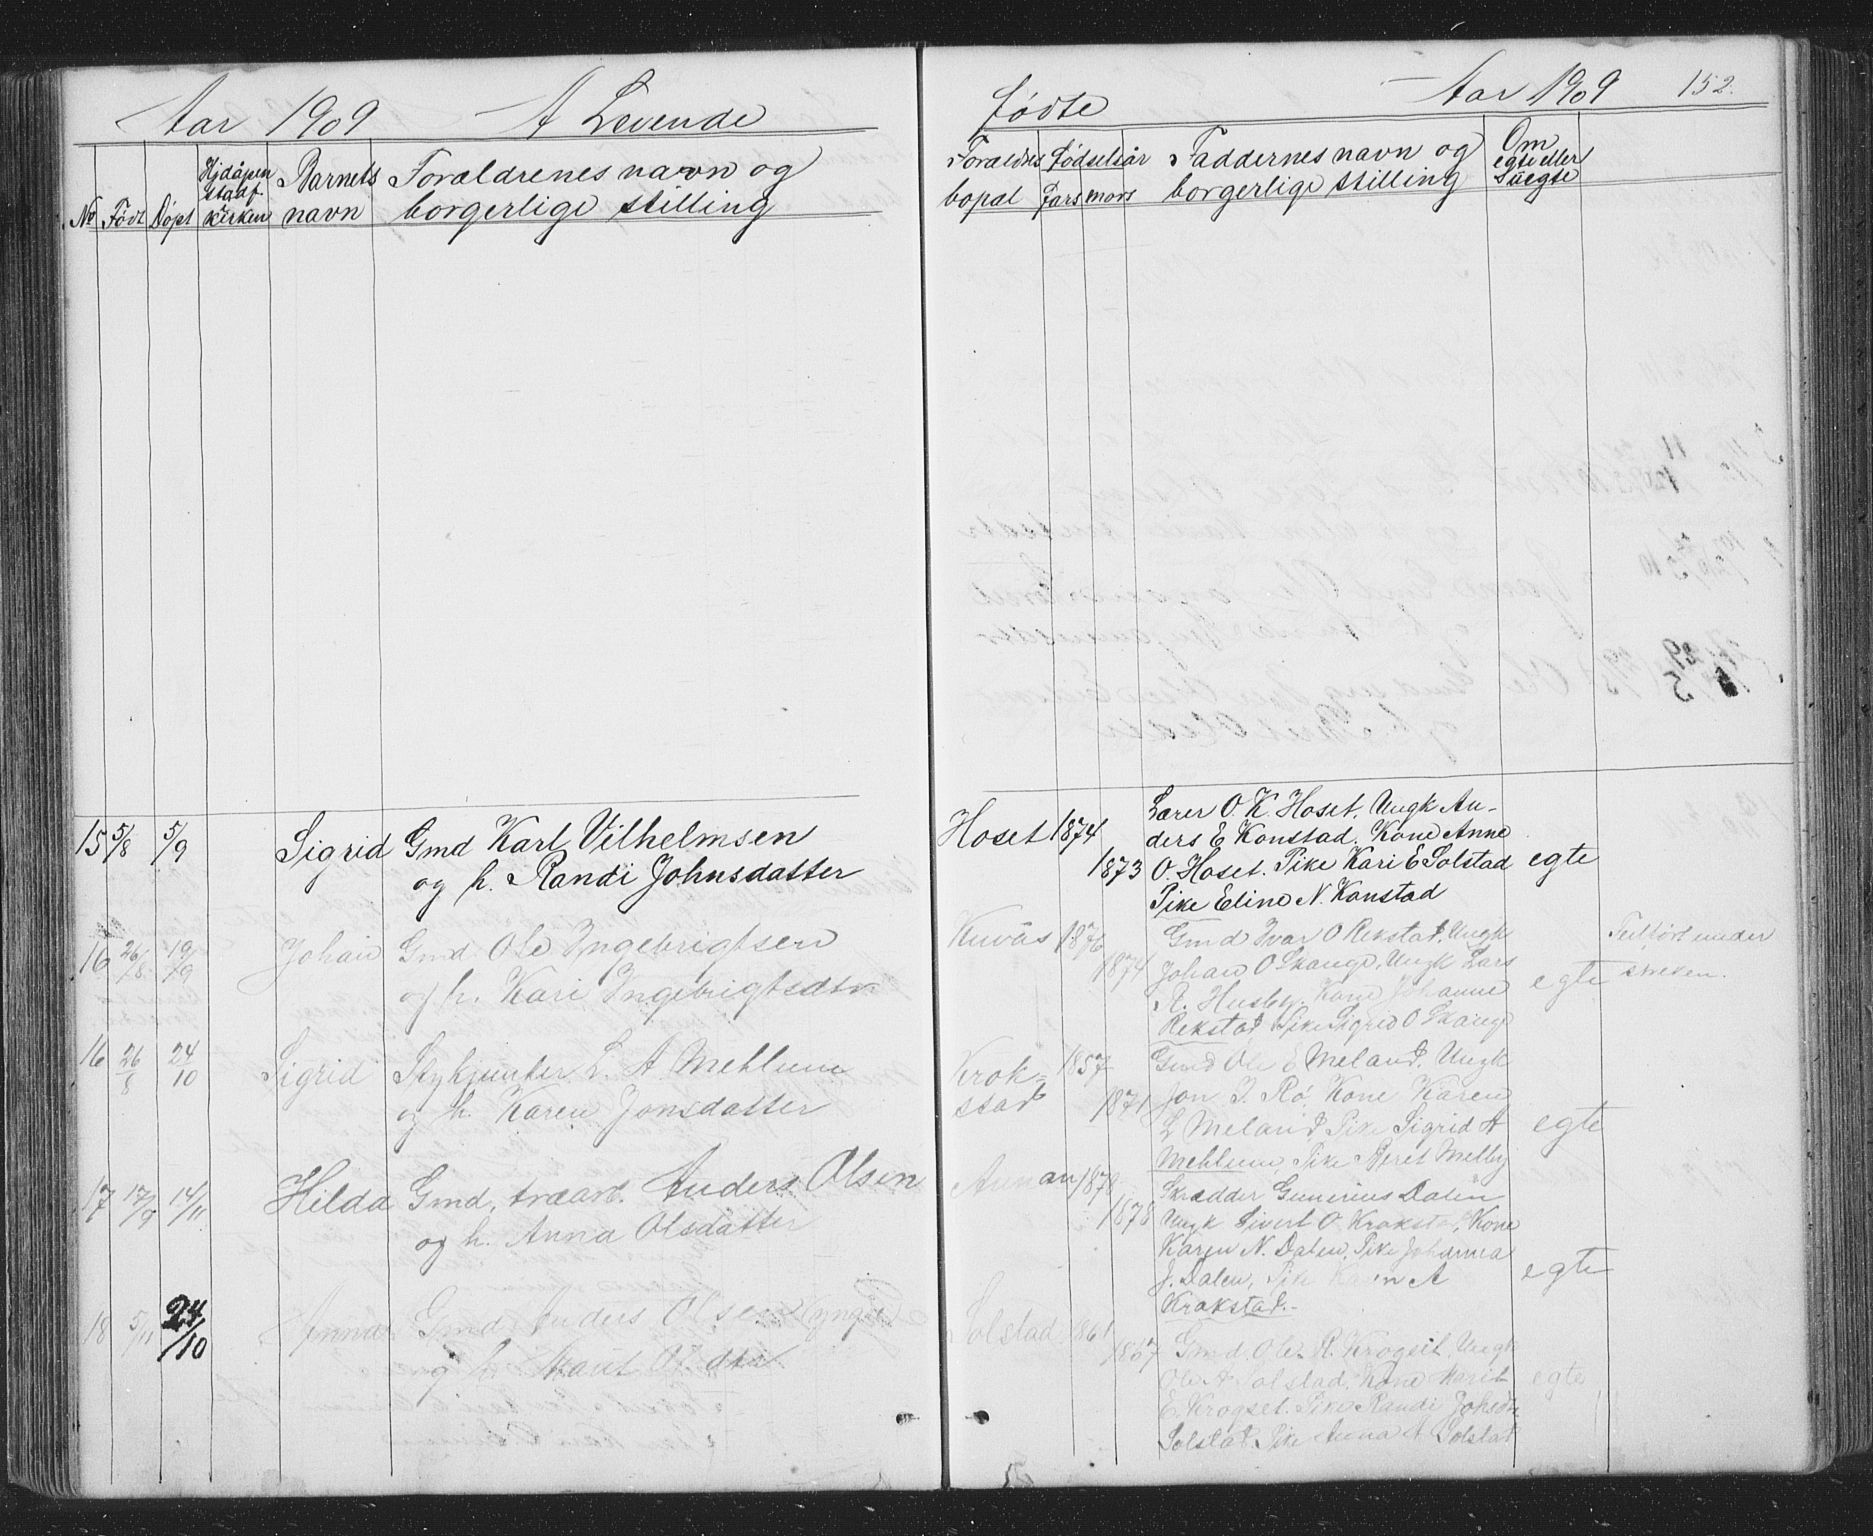 Aar 1909 A Levende
No Født Døpt Hjdåpen stadf kirken Barnets navn Forældrenes navn og
borgerlige stilling
15 5/8 5/9 Sigrid Gmd Karl Vilhelmsen
og h. Randi Johnsdatter
16 26/8 19/9 Johan Gmd Ole Ingebrigtsen
og h. Kari Ingebrigtsdtr
16 26/8 24/10 Sigrid L. A Mehlum
og h. Karen Jonsdatter
17 17/9 14/11 Hilda Gmd, træarb. Anders Olsen
og h. Anna Olsdatter
18 5/11 24/10 Anna Gmd Anders Olsen
og h.
fødte Aar 1909 152.
Forældres Fødselsår Faddernes navn og Om
bopæl Fars mors borgerlige stilling egte eller
Uegte
Hoset 1874 Lærer O. K. Hoset. Ungk An-
ders E Konstad. Kone Anne
1873 O. Hoset. Pike Kari E Solstad egte
Pike Eline N. Konstad
Kuvås 1876 Gmd Ivar O Rekstad. Ungk under
1874 Johan O Skauge, Ungk Lars egte
A. Husby. Kone Johanne
Rekstad Pike Sigrid O Skauge
Krok- 1857 Gmd Ole E Meland. Ungk
stad 1871 Jon J. Rø. Kone Karen
L Meland. Pike Sigrid A egte
Mehlum, Pike Beret Melby
Annan 1878 Skrædder Gunerius Dalen
1878 Ungk Sivert O. Krokstad, Kone
Karen N. Dalen, Pike Johanna
J. Dalen, Pike Karen A egte
Krokstad.-
Solstad 1861 Gmd. Ole R. Krogset. Ungk
1867 Ole A Solstad, Kone Marit egte
E. Krogset. Pike Randi Johsdtr
Solstad. Pike Anna A Solstad